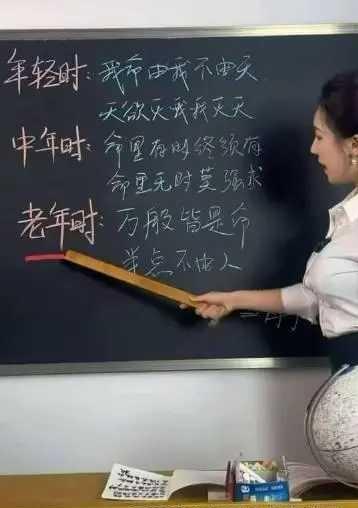 年轻时：我命由我不由天
天欲灭我我灭天
中年时：命里有时终须有
命里无时莫强求
老年时：万般皆是命
半点不由人